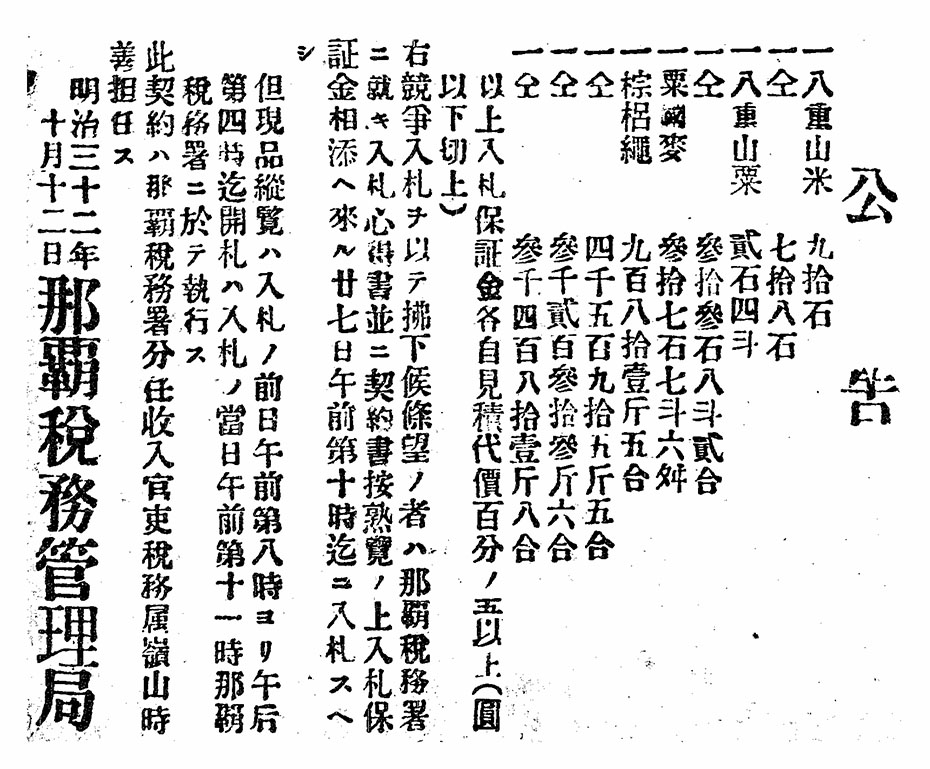 公告
一八重山米　九拾石
一仝　七拾八石
一八重山粟　貳石四斗
一仝　參拾參石八斗貳合
一粟國麥　參拾七石七斗六舛
一棕梠繩　九百八拾壹斤五合
一仝　四千五百九拾九斤五合
一仝　參千貳百參拾參斤六合
一仝　參千四百八拾壹斤八合
以上入札保証金各自見積代價百分ノ五以上(圓
以下切上)
右競爭入札ヲ以テ拂下候條望ノ者ハ那覇税務署
ニ就キ入札心得書並ニ契約書按熟覽ノ上入札保
証金相添ヘ來ル廿七日午前第十時迄ニ入札スヘ
シ
但現品縱覽ハ入札ノ前日午前第八時ヨリ午后
第四時迄開札ハ入札ノ當日午前第十一時那覇
税務署ニ於テ執行ス
此契約ハ那覇税務署分任收入官吏税務属嶺山時
善担任ス
明治三十二年
十月十二日
那覇税務管理局